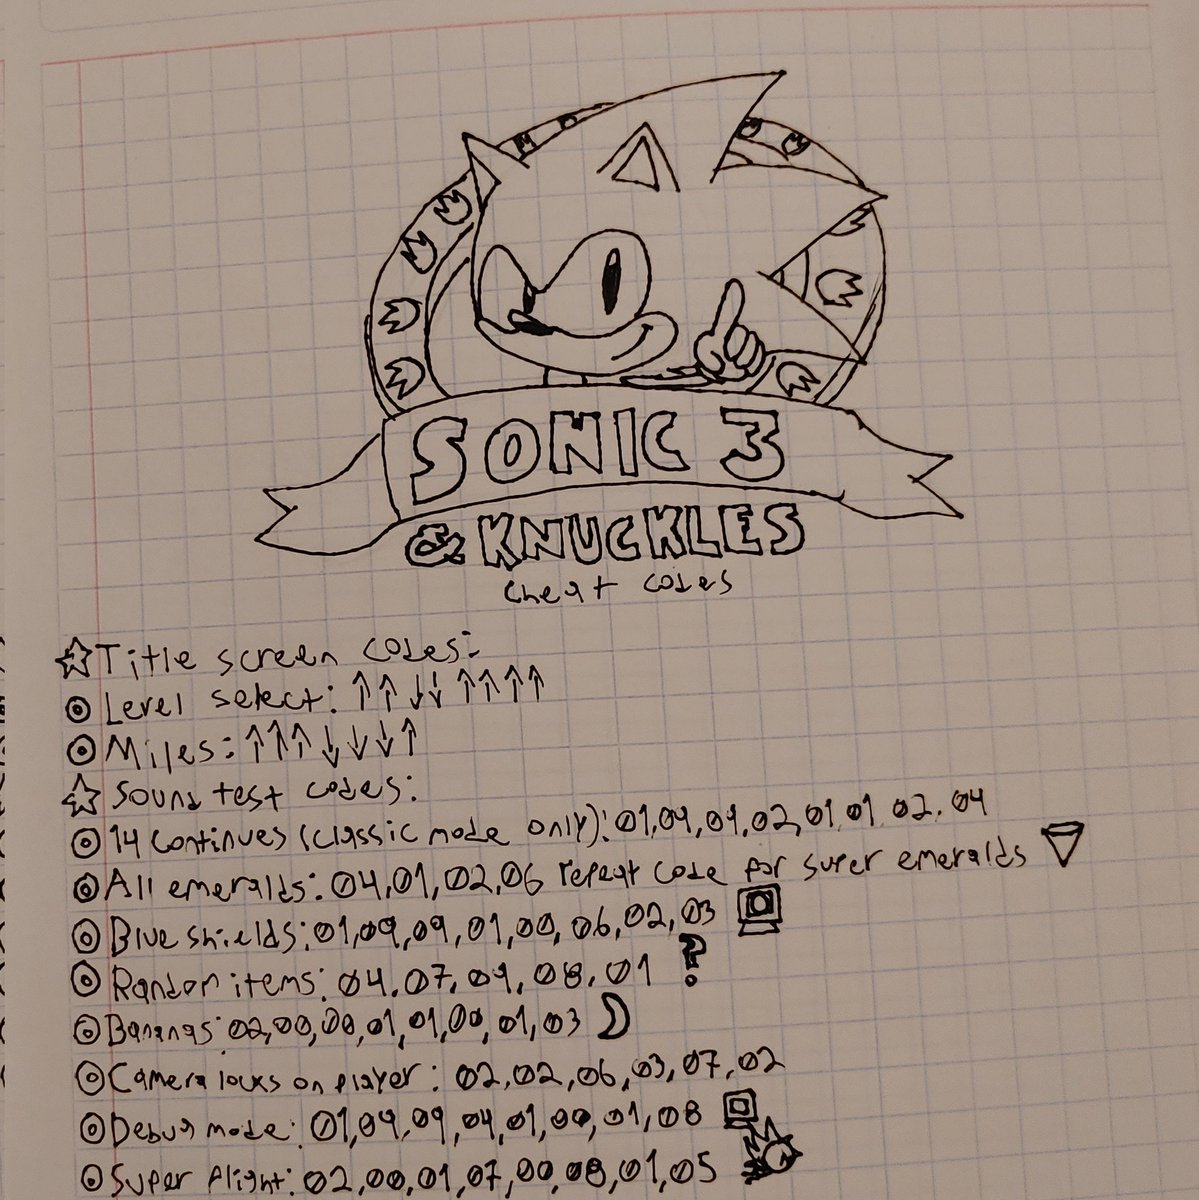 SONIC 3
& KNUCKLES
cheat codes
Title screen codes:
Level select: ↑↑↓↓↑↑↑↑
Miles: ↑↑↑↓↓↓↑
Sound test codes:
14 continues (classic mode only): 01,09,09,02,01,01,02,04
All emeralds: 04,01,02,06 repeat code for super emeralds
Blue shields: 01,09,09,01,00,06,02,03
Random items: 04,07,09,08,01 ?
Bananas: 02,00,00,01,01,00,01,03
Camera locks on player: 02,02,06,03,07,02
Debug mode: 01,09,09,04,01,00,01,08
Super flight: 02,00,01,07,00,08,01,05